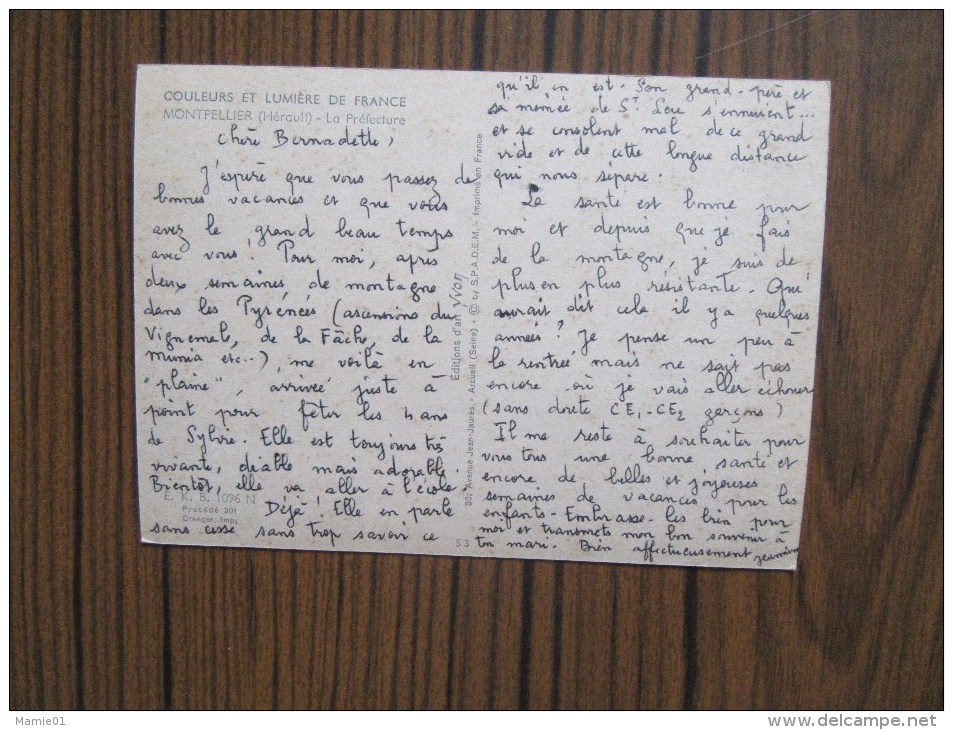 COULEURS ET LUMIÈRE DE FRANCE
MONTPELLIER (Hérault) - La Préfecture
Chère Bernadette,
J'espère que vous passez de
bonnes vacances et que vous
avez le grand beau temps
avec vous ! Pour moi, après
deux semaines de montagne
dans les Pyrénées (ascensions du
Vignemale, de la Fâche, de la
Munia etc..), me voilà en
"plaine", arrivée juste à
point pour fêter les 4 ans
de Sylvie. Elle est toujours très
vivante, diable mais adorable.
Bientôt, elle va aller à l'école
Déjà ! Elle en parle
sans cesse sans trop savoir ce
E. K. B. 1096 N
Procédé 301
Draeger, Imp.
53
Éditions d'art YVON
30, Avenue Jean-Jaurès, Arcueil (Seine) - © by S.P.A.D.E.M. - Imprimé en France
qu'il en est. Son grand-père et
sa mémée de St Lou s'ennuient...
et se consolent mal de ce grand
vide et de cette longue distance
qui nous sépare.
La santé est bonne pour
moi et depuis que je fais
de la montagne, je suis de
plus en plus résistante. Qui
aurait dit cela il y a quelques
années ? Je pense un peu à
la rentrée mais ne sait pas
encore où je vais aller échouer
(sans doute CE1-CE2 garçons)
Il me reste à souhaiter pour
vous tous une bonne santé et
encore de belles et joyeuses
semaines de vacances pour les
enfants - Embrasse-les bien pour
moi et transmets mon bon souvenir à
ton mari. Bien affectueusement Jeannine
Mamie01
www.delcampe.net